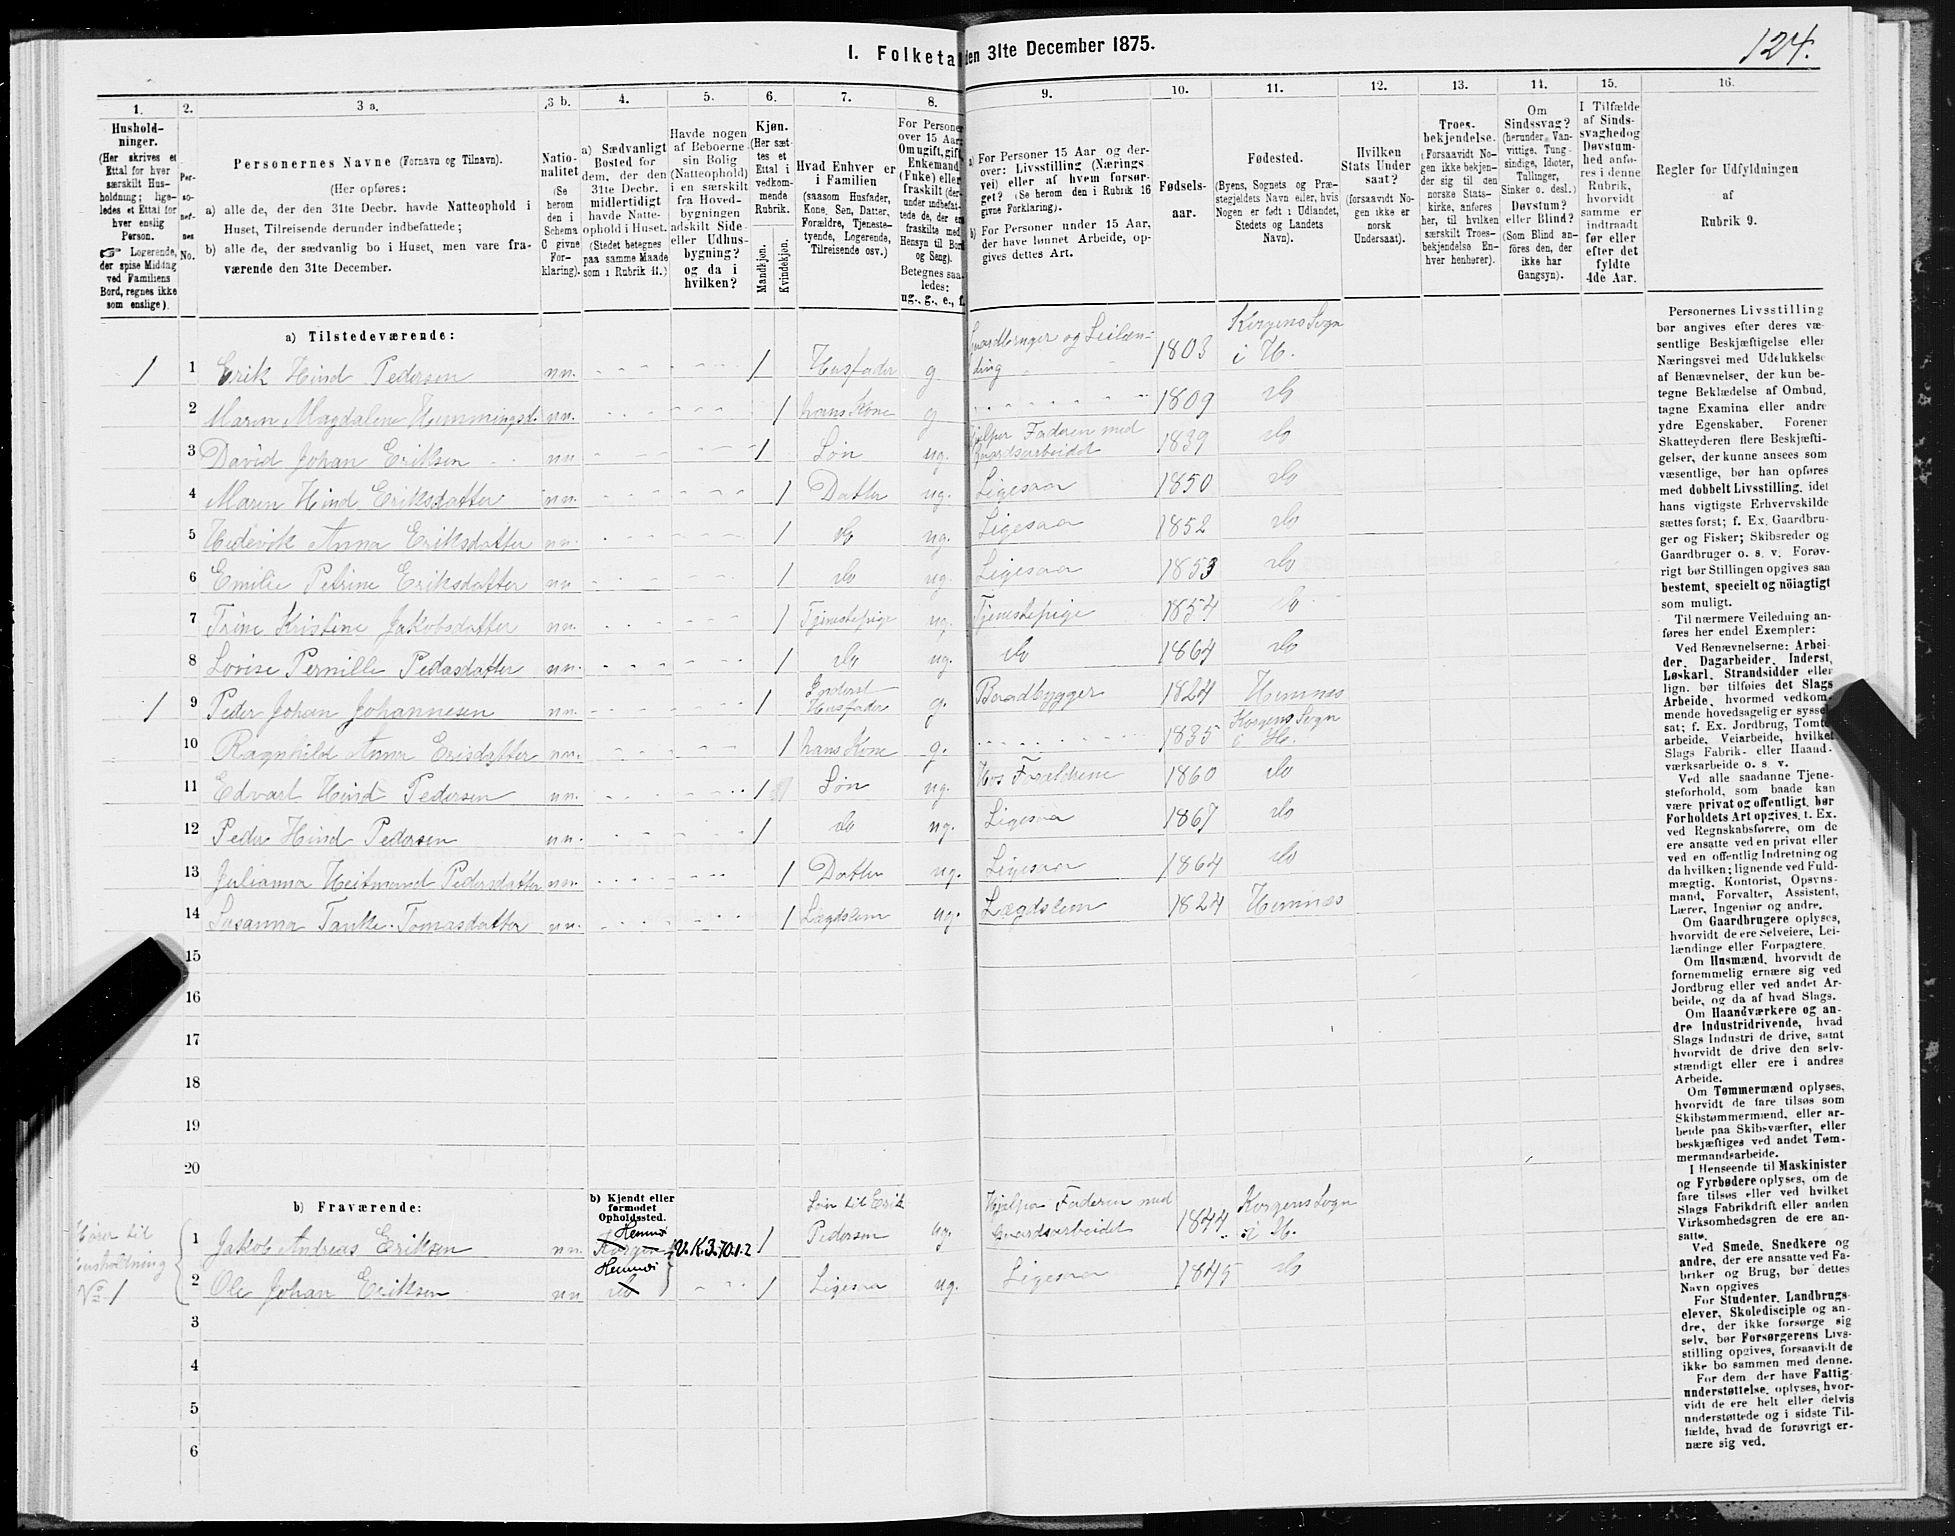 I. Folketal den 31te December 1875.
124.
1.
2.
3 a.
3 b.
4.
5.
6.
7.
8.
9.
10.
11.
12.
13.
14.
15.
16.
Hushold-
ninger.
(Her skrives et
Ettal for hver
særskilt Hus-
holdning; lige-
ledes et Ettal for
hver enslig
Person.
☞ Logerende,
der spise Middag
ved Familiens
Bord, regnes ikke
som enslige).
Per-
so-
ner-
nes
No.
Personernes Navne (Fornavn og Tilnavn).
(Her opføres:
a) alle de, der den 31te Decbr. havde Natteophold i
Huset, Tilreisende derunder indbefattede;
b) alle de, der sædvanlig bo i Huset, men vare fra-
værende den 31te December.
Natio-
nalitet
(Se
herom
den i
Schema
C givne
For-
klaring).
a) Sædvanligt
Bosted for
dem, der den
31te Decbr.
midlertidigt
havde Natte-
ophold i Huset.
(Stedet betegnes
paa samme Maade
som i Rubrik 11.)
Havde nogen
af Beboerne
sin Bolig
(Natteophold)
i en særskilt
fra Hoved-
bygningen
adskilt Side-
eller Udhus-
bygning?
og da i
hvilken?
Kjøn.
(Her sæt-
tes et
Ettal i
vedkom-
mende
Rubrik.
Mandkjøn.
Kvindekjøn.
Hvad Enhver er
i Familien
(saasom Husfader,
Kone, Søn, Datter,
Forældre, Tjeneste-
tyende, Logerende,
Tilreisende osv.)
For Personer
over 15 Aar:
Om ugift, gift,
Enkemand
(Enke) eller
fraskilt (der-
under indbefat-
tede de, der ere
fraskilte med
Hensyn til Bord
og Seng).
Betegnes saa-
ledes:
ug., g., e., f.
a) For Personer 15 Aar og der-
over: Livsstilling (Nærings-
vei) eller af hvem forsør-
get? (Se herom den i Rubrik 16
givne Forklaring).
b) For Personer under 15 Aar,
der have lønnet Arbeide, op-
gives dettes Art.
Fødsels-
aar.
Fødested.
(Byens, Sognets og Præ-
stegjeldets Navn eller, hvis
Nogen er født i Udlandet,
Stedets og Landets
Navn).
Hvilken
Stats Under-
saat?
(forsaavidt No-
gen ikke er
norsk
Undersaat).
Troes-
bekjendelse.
(Forsaavidt No-
gen ikke bekjen-
der sig til den
norske Stats-
kirke, anføres
her, til hvilken
særskilt Troes-
bekjendelse En-
hver henhører).
Om
Sindssvag?
(herunder Van-
vittige, Tung-
sindige, Idioter,
Tullinger,
Sinker o. desl.)
Døvstum?
eller Blind?
(Som Blind an-
føres den, der
ikke har
Gangsyn).
I Tilfælde
af Sinds-
svaghed og
Døvstum-
hed anfø-
res i denne
Rubrik,
hvorvidt
samme er
indtraadt
før eller
efter det
fyldte
4de Aar.
Regler for Udfyldningen
af
Rubrik 9.
a) Tilstedeværende:
1 1 Erik Hind Pedersen nn. 1 Husfader g Gaardbruger og Leilæn-
ding 1803 Korgens Sogn
i H.
2 Maren Magdalene Hemmingsd. nn. 1 hans Kone g 1809 do
3 David Johan Eriksen nn 1 Søn ug. Hjelper Faderen med
Gaardsarbeidet 1839 do
4 Maren Hind Eriksdatter nn. 1 Datter ug. Ligesaa 1850 do
5 Hedevik Anna Eriksdatter nn. 1 do ug. Ligesaa 1852 do
6 Emilie Petrine Eriksdatter nn 1 do ug. Ligesaa 1853 do
7 Trine Kristine Jakobsdatter nn. 1 Tjenestepige ug. Tjenestepige 1854 do
8 Lovise Pernille Pedersdatter nn. 1 do ug. do 1864 do
1 9 Peder Johan Johannesen nn. 1 Inderst
Husfader g. Baadbygger 1824 Hemnæs
10 Ragnhild Anna Erisdatter nn. 1 hans Kone g. 1835 Korgens Sogn
i He.
11 Edvart Hind Pedersen nn. 1 Søn ug. Hos Forældrene 1860 do
12 Peder Hind Pedersen nn. 1 do ug. Ligesaa 1867 do
13 Julianna Heitmand Pedersdatter nn. 1 Datter ug. Ligesaa 1864 do
14 Susanna Tanke Tomasdatter nn. 1 Lægdslem ug. Lægdslem 1824 Hemnæs
15
16
17
18
19
20
b) Fraværende:
b) Kjendt eller
formodet
Opholdssted.
Hører til
Husholdning
No. 1
1 Jakob Andreas Eriksen nn. Korgen Hemnæs V.K.3.70.1.2 1 Søn til Erik
Pedersen ug. Hjelper Faderen med
Gaardsarbeidet 1844. Korgens Sogn
i H.
2 Ole Johan Eriksen nn do 1 Ligesaa ug. Ligesaa 1845 do
3
4
5
6
Personernes Livsstilling
bør angives efter deres væ-
sentlige Beskjæftigelse eller
Næringsvei med Udelukkelse
af Benævnelser, der kun be-
tegne Beklædelse af Ombud,
tagne Examina eller andre
ydre Egenskaber. Forener
Skatteyderen flere Beskjæfti-
gelser, der kunne ansees som
væsentlige, bør han opføres
med dobbelt Livsstilling, idet
hans vigtigste Erhvervskilde
sættes først; f. Ex. Gaardbru-
ger og Fisker; Skibsreder og
Gaardbruger o. s. v. Forøv-
rigt bør Stillingen opgives saa
bestemt, specielt og nöiagtigt
som muligt.
Til nærmere Veiledning an-
føres her endel Exempler:
Ved Benævnelserne: Arbei-
der, Dagarbeider, Inderst,
Løskarl, Strandsidder eller
lign. bør tilføies det Slags
Arbeide, hvormed vedkom-
mende hovedsagelig er syssel-
sat; f. Ex. Jordbrug, Tomte-
arbeide, Veiarbeide, hvilket
Slags Fabrik- eller Haand-
værksarbeide o. s. v.
Ved alle saadanne Tjene-
steforhold, som baade kan
være privat og offentligt, bør
Forholdets Art opgives, t. Ex.
ved Regnskabsførere, om de
ere ansatte ved en privat eller
ved en offentlig Indretning og
da hvilken; lignende ved Fuld-
mægtig, Kontorist, Opsyns-
mand, Forvalter, Assistent,
Lærer, Ingeniør og andre.
Om Gaardbrugere oplyses,
hvorvidt de ere Selveiere, Lei-
lændinge eller Forpagtere.
Om Husmænd, hvorvidt de
fornemmelig ernære sig ved
Jordbrug eller ved andet Ar-
beide, og da af hvad Slags.
Om Haandværkere og an-
dre Industridrivende, hvad
Slags Industri de drive, samt
hvorvidt de drive den selv-
stændigt eller ere i andres
Arbeide.
Om Tømmermænd oplyses,
hvorvidt de fare tilsøs som
Skibstømmermænd, eller ar-
beide paa Skibsværfter, eller
beskjæftiges ved andet Tøm-
mermandsarbeide.
I Henseende til Maskinister
og Fyrbødere oplyses, om de
fare tilsøs eller ved hvilket
Slags Fabrikdrift eller anden
Virksomhedsgren de ere an-
satte.
Ved Smede, Snedkere og
andre, der ere ansatte ved Fa-
briker og Brug, bør dettes
Navn opgives.
For Studenter, Landbrugs-
elever, Skoledisciple og an-
dre, der ikke forsørge sig
selv, bør Forsørgerens Livs-
stilling opgives, forsaavidt de
ikke bo sammen med denne.
For dem, der have Fattig-
understøttelse, oplyses, hvor-
vidt de ere helt eller delvis
understøttede og i sidste Til-
fælde, hvad de forøvrigt er-
nære sig ved.